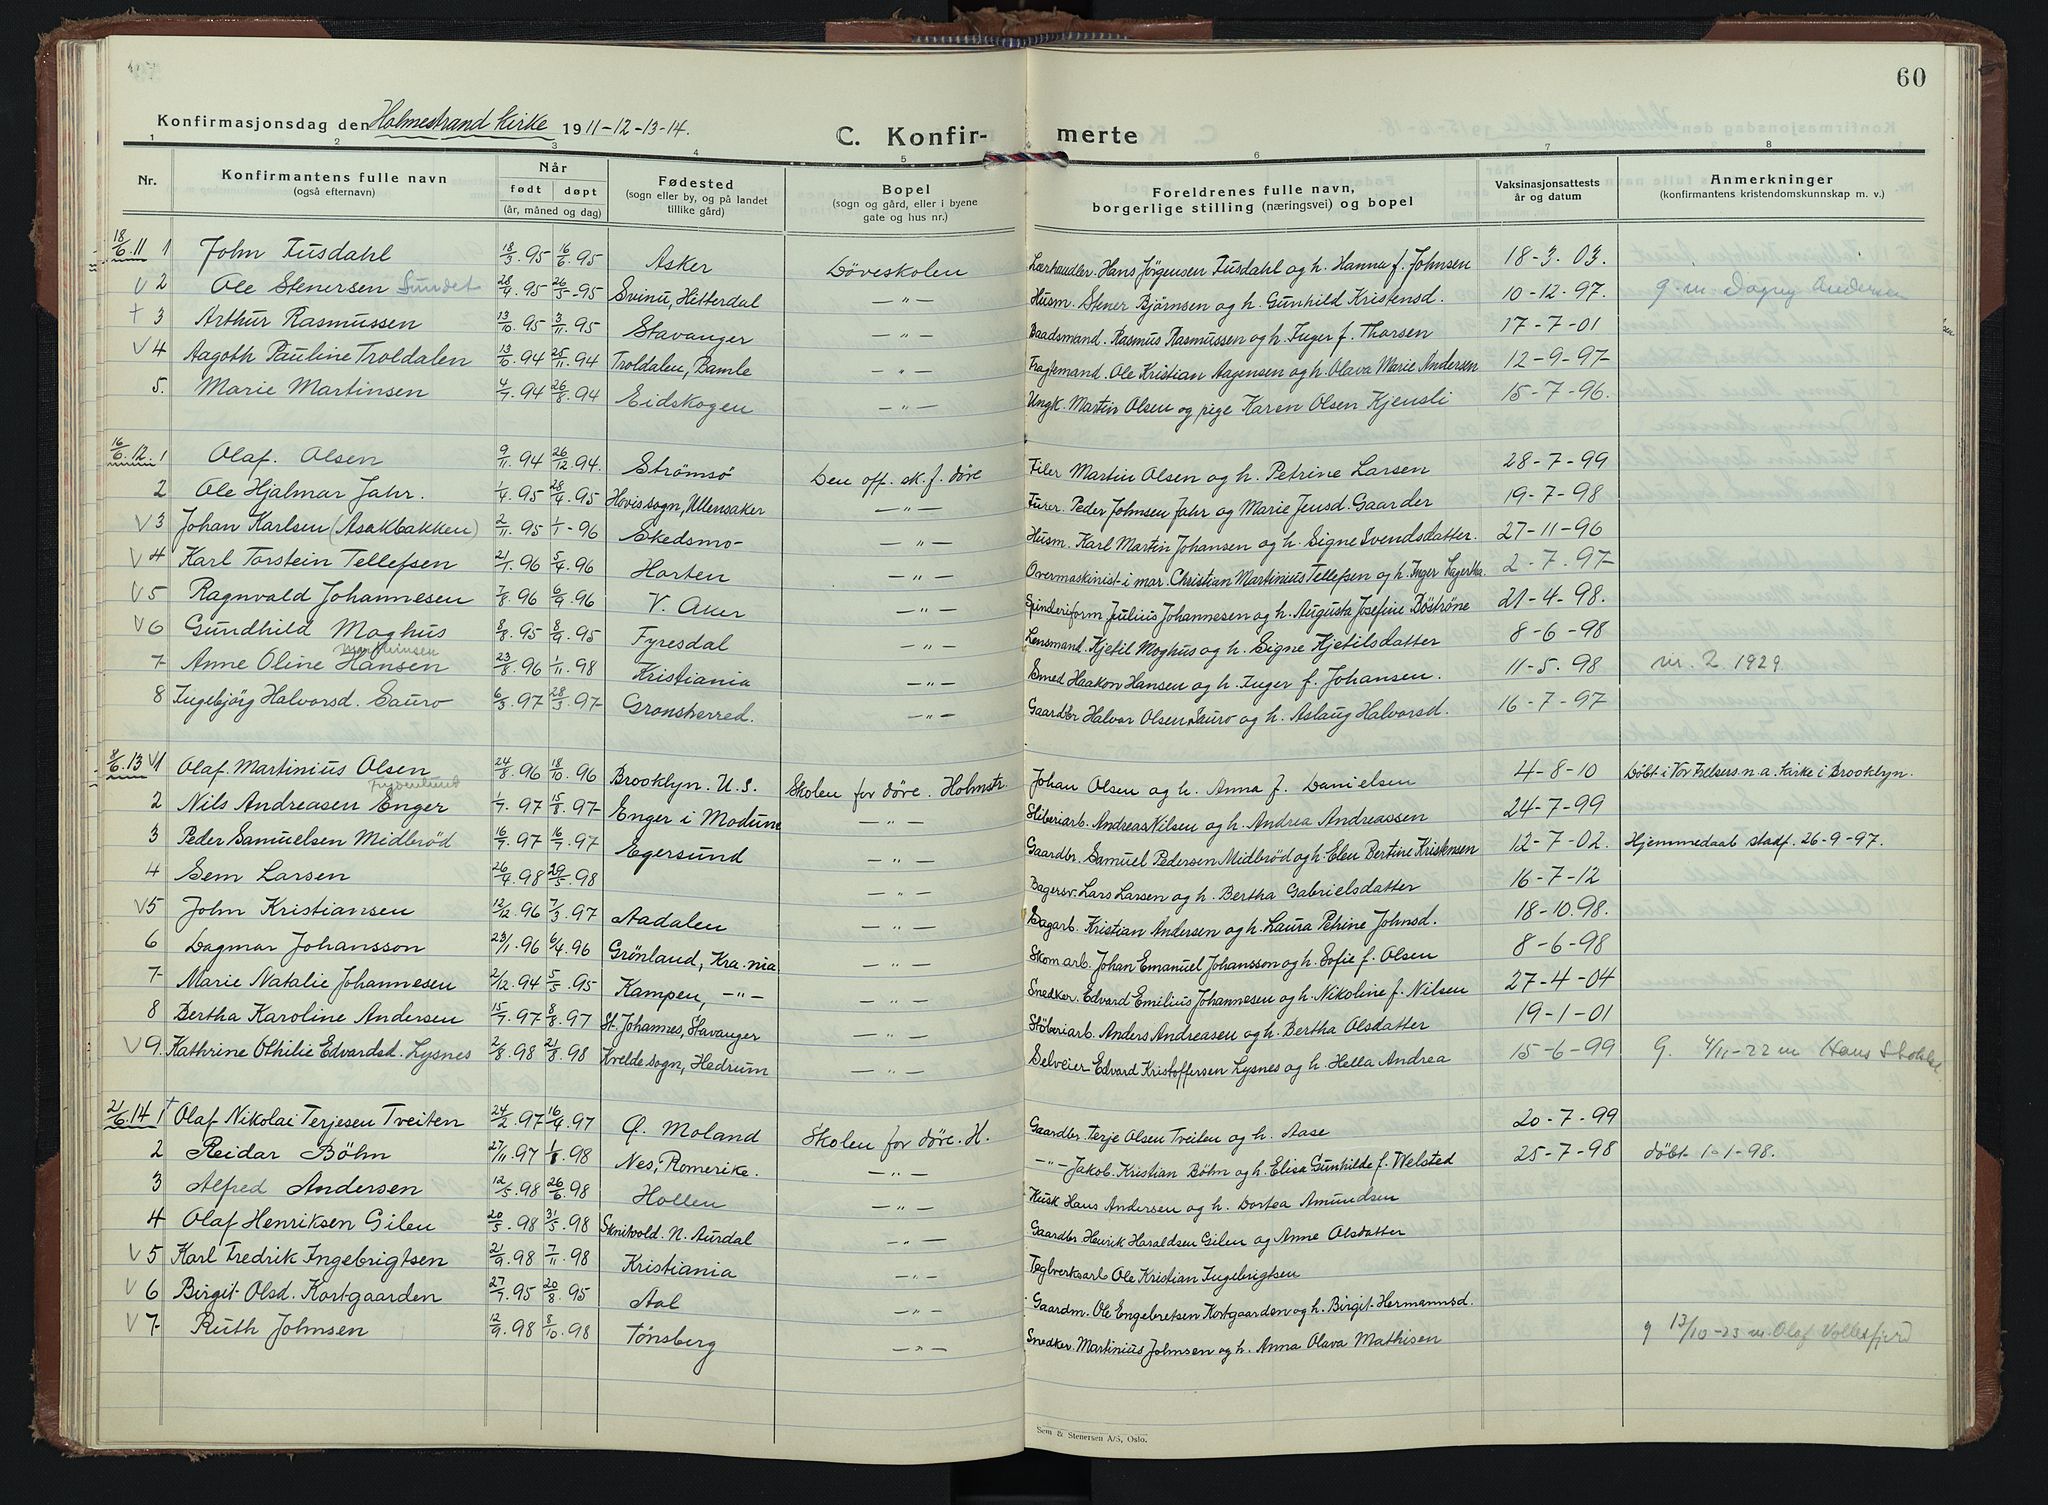 60
Konfirmasjonsdag den Holmestrand kirke 1911-12-13-14.
C. Konfirmerte
1 2 3 4 5 6 7 8
Nr. Konfirmantens fulle navn (også efternavn) Når født døpt (år, måned og dag) Fødested (sogn eller by, og på landet tillike gård) Bopel (sogn og gård, eller i byene gate og hus nr.) Foreldrenes fulle navn, borgerlige stilling (næringsvei) og bopel Vaksinasjonsattests år og datum Anmerkninger (konfirmantens kristendomskunnskap m. v.)
18/6.11 1 John Fusdahl 18/3.95 16/6.95 Asker Døveskolen Lærhandler. Hans Jörgensen Fusdahl og h. Hanna f. Johnsen 18-3.03.
V 2 Ole Stenersen Sundet 28/4.95 26/5-95 Svinu, Hitterdal -"- Husm. Stener Bjørnsen og h. Gunhild Kristensd. 10-12-97. g. m. Dagny Andersen
+ 3 Arthur Rasmussen 13/10.95 3/11.95 Stavanger -"- Baadsmand. Rasmus Rasmussen og h. Inger f. Thorsen 17-7-01
V 4 Aagoth Pauline Troldalen 13/10.94 25/11.94 Troldalen, Bamle -"- Fragtemand. Ole Kristian Aagensen og h. Olava Marie Andersen 12-9-97-
5. Marie Martinsen 4/7.94 26/8.94 Eidskogen -"- Ungk. Martin Olsen og pige Karen Olsen Kjensli 15-7-96.
16/6.12. 1 Olaf. Olsen 9/11.94 26/12.94. Strömsö Den off. sk. f. døve Filer Martin Olsen og h. Petrine Larsen 28-7-99
2 Ole Hjalmar Jahr. 1/4.95 28/4.95 Hovis sogn, Ullensaker -"- Furer. Peder Johnsen Jahr og Marie Jensd. Gaarder 19-7-98
V 3 Johan Karlsen (Asakbakken) 2/11.95 1/1-96 Skedsmo- -"- Husm. Karl Martin Johansen og h. Signe Svendsdatter. 27-11-96
V 4 Karl Torstein Tellefsen 21/1.96 5/4.96 Horten -"- Overmaskinist i mar. Christian Martinius Tellefsen og h. Inger Lagertha. 2-7.97-
V 5 Ragnvald Johannesen 7/8.96 6/9.96 V. Aker -"- Spinderiform Julius Johannesen og h. Augusta Josefine Böströne 21-4-98.
V 6 Gundhild Moghus 8/8.95 8/9.95 Fyresdal -"- Lensmand. Kjetil Moghus og h. Signe Kjetilsdatter 8-6-98
7- Anne Oline Hansen 23/8.96 1/11.98 Kristiania -"- Smed Haakon Hansen og h. Inger f. Johansen. 11-5.98 nr. 2. 1929
8 Ingebjörg Halvorsd. Sauro 6/3.97 28/3.97- Gransherred. -"- Gaardbr Halvor Olsen Sauro og h. Aslaug Halvorsd. 16-7-97
8/6.13 V 1 Olaf. Martinius Olsen 24/8.96 18/10.96 Brooklyn. U. S. Skolen for døve. Holmstr. Johan Olsen og h. Anna f. Danielsen 4-8-10 Døbt i Vor Frelsers n. a. kirke i Brooklyn.
2 Nils Andreasen Enger 1/7.97 15/8.97 Enger i Modum -"- Sliberiarb. Andreas Nilsen og h. Andrea Andreassen 24-7-99
3 Peder Samuelsen Midbrød 16/7.97 16/7.97 Egersund -"- Gaardbr. Samuel Pedersen Midbrød og h. Elen Bertine Kristensen 12-7-02. Hjemmedaab stadf. 26-9-97.
4 Sem Larsen 26/4.98 29/5.98 -"- Bagersv. Lars Larsen og h. Bertha Gabrielsdatter 16-7-12
V 5 John Kristiansen 12/12.96 7/3.97 Aadalen -"- Sagarb. Kristian Andersen og h. Laura Petrine Johnsd. 18-10.98.
6 Dagmar Johansson 23/1.96 6/4.96 Grønland, Kra.nia. -"- Skom arb. Johan Emanuel Johansson og h. Sofie f. Olsen 8-6-98
7- Marie Natalie Johannesen 2/12.94 5/5.95 Kampen, -"- -"- Snedker. Edvard Emilius Johannesen og h. Nikoline f. Nilsen 27-4-04
8 Bertha Karoline Andersen 15/7.97 8/8.97 St. Johannes, Stavanger -"- Støberiarb. Anders Andreasen og h. Bertha Olsdatter 19-1-01
V 9. Kathrine Othilie Edvardsd. Lysnes 2/8.98 21/8.98 Kvelde sogn, Hedrum -"- Selveier Edvard Kristoffersen Lysnes og h. Hella Andrea 15-6-99 g. 4/11-22 m Hans
21/6.14 1 + Olaf Nikolai Terjesen Tveiten 24/2.97 16/4.97 Ø. Moland Skolen for døve. H. Gaardbr. Terje Olsen Tveiten og h. Aase 20-7-99
2 Reidar Böhn 27/11.97 1/8.98 Nes, Romerike. -"- -"- Jakob. Kristian Bøhn og h. Elisa Gunhilde f. Welsted 25-7-98 døbt 1-1-98.
3 Alfred Andersen 12/5.98 26/6.98 Hollen -"- Kusk Hans Andersen og h. Dortea Amundsen
4 Olaf Henriksen Gilen 20/5.98 31/5.98 Skrutvold. N. Aurdal -"- Gaardbr. Henrik Haraldsen Gilen og Anne Olsdatter
V 5 Karl Fredrik Ingebrigtsen 21/9.98 7/11.98 Kristiania -"- Teglverksarb Ole Kristian Ingebrigtsen
V 6 Birgit Olsd. Kortgaarden 27/7.95 20/8.95 Aal -"- Gaardm. Ole Engebretsen Kortgaarden og h. Birgit Hermannsd.
V 7- Ruth Johnsen 12/9.98 8/10.98 Tønsberg -"- Snedker. Martinius Johnsen og h. Anna Olava Mathisen g 13/10-23 m. Olaf Vollesfjord
Sem & Stenersen A/S, Oslo.